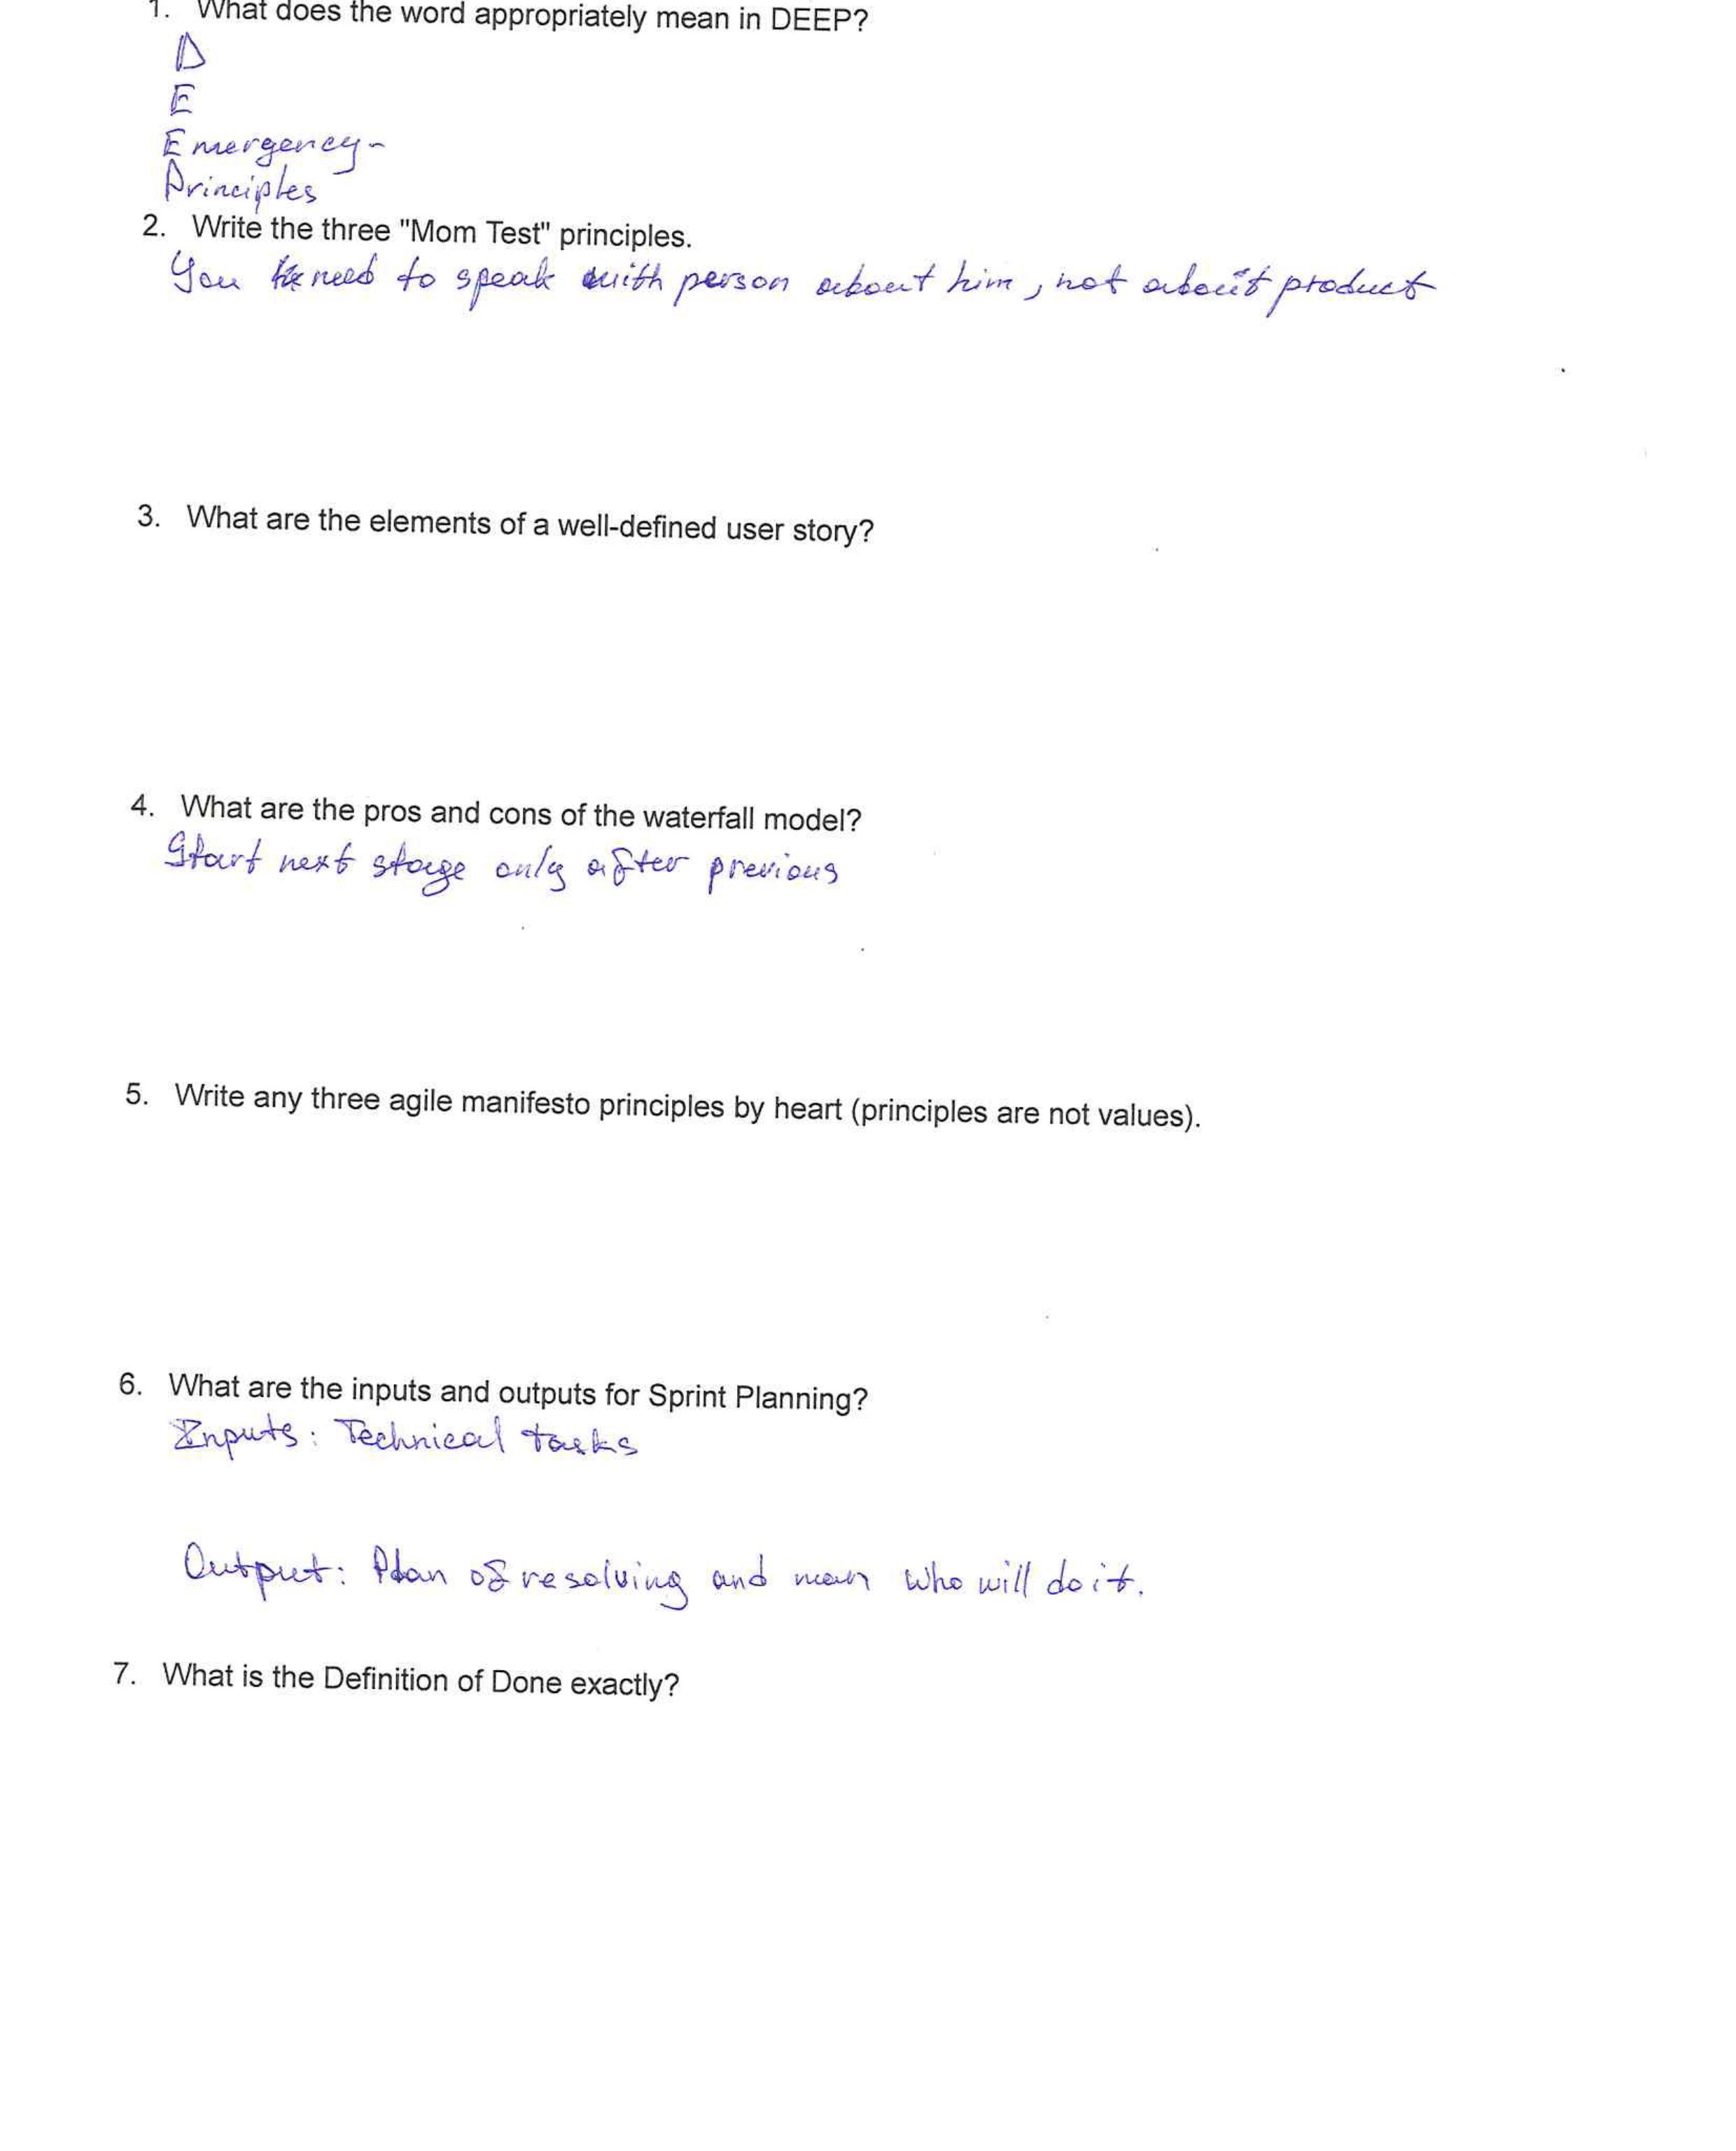 1. What does the word appropriately mean in DEEP?
D
E
Emergency-
Principles
2. Write the three "Mom Test" principles.
You need to speak with person about him, not about product
3. What are the elements of a well-defined user story?
4. What are the pros and cons of the waterfall model?
Start next stage only after previous
5. Write any three agile manifesto principles by heart (principles are not values).
6. What are the inputs and outputs for Sprint Planning?
Inputs: Technical tasks
Output: Plan of resolving and man who will do it.
7. What is the Definition of Done exactly?